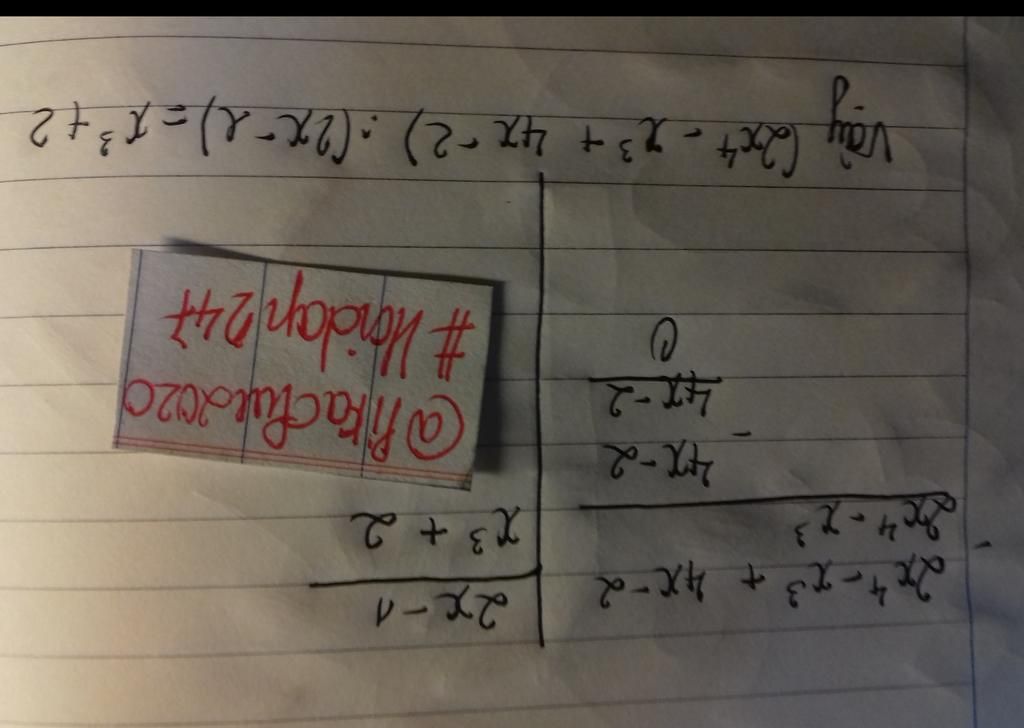 2x⁴ - x³ + 4x - 2
2x - 1
-
2x⁴ - x³
x³ + 2
4x - 2
-
4x - 2
0
#Hoidap247
Vậy (2x⁴ - x³ + 4x - 2) : (2x - 1) = x³ + 2